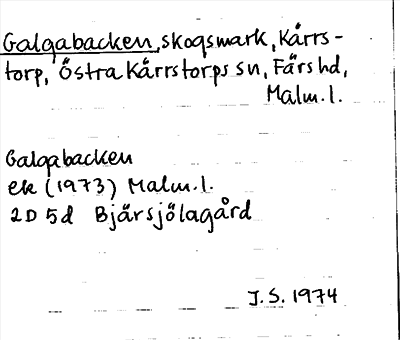 Galgabacken, skogsmark, Kärrs-
torp, Östra Kärrstorps sn, Färs hd,
Malm. l.
Galgabacken
ek (1973) Malm. l.
2D 5d Bjärsjölagård
J.S. 1974